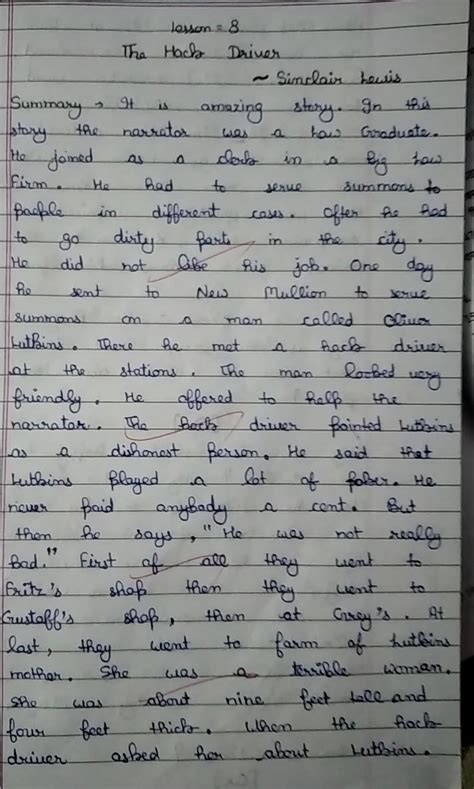 Lesson = 8
The Hack Driver
~ Sinclair Lewis
Summary → It is amazing story. In this
story the narrator was a Law Graduate.
He joined as a clerk in a big Law
Firm. He had to serve summons to
people in different cases. Often he had
to go dirty parts in the city.
He did not like his job. One day
he sent to New Mullion to serve
summons on a man called Oliver
Lutkins. There he met a hack driver
at the stations. The man looked very
friendly. He offered to help the
narrator. The hack driver pointed Lutkins
as a dishonest person. He said that
Lutkins played a lot of poker. He
never paid anybady a cent. But
then he says, "He was not really
Bad." First of all they went to
Fritz's shop then they went to
Gustaff's shop, then at Grey's. At
last, they went to farm of Lutkins
mother. She was a terrible woman.
She was about nine feet tall and
four feet thick. When the hack
driver asked her about Lutkins.